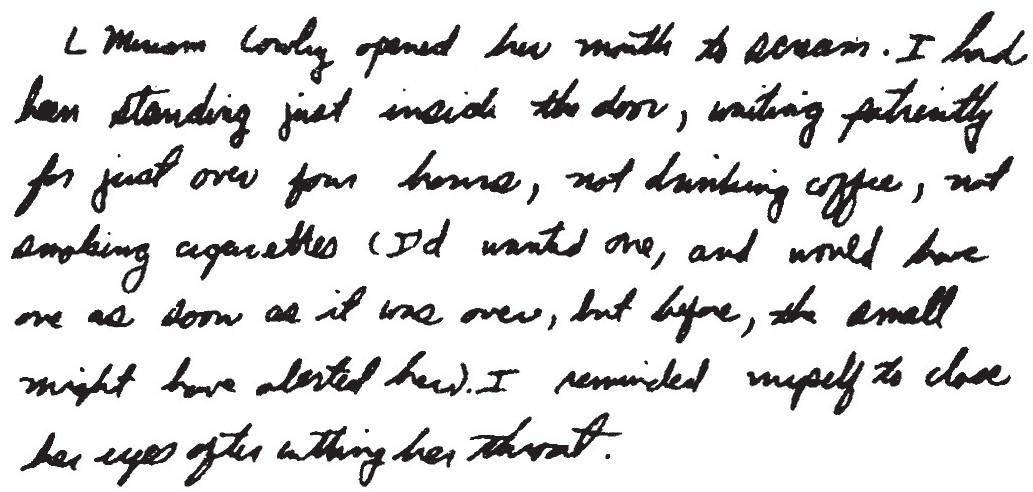 L Miriam Cowley opened her mouth to scream. I had
been standing just inside the door, waiting patiently
for just over four hours, not drinking coffee, not
smoking cigarettes (I'd wanted one, and would have
one as soon as it was over, but before, the smell
might have alerted her). I reminded myself to close
her eyes after cutting her throat.